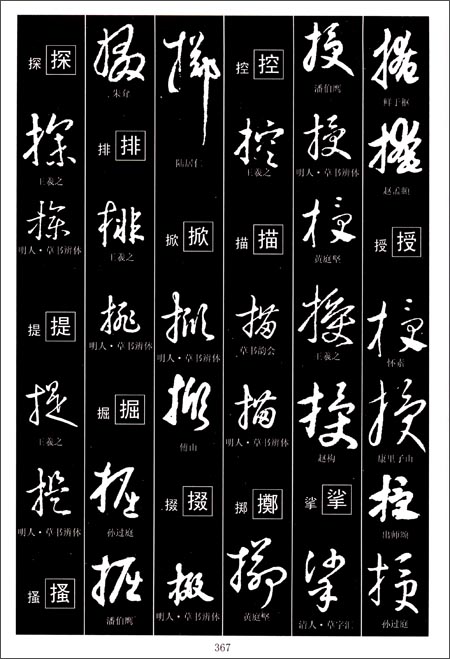 鲜于枢
赵孟頫
授 授
授
怀素
授
康里子山
授
出师颂
授
孙过庭
授
潘伯鹰
授
明人·草书辨体
授
黄庭坚
授
王羲之
授
赵构
挲 挲
挲
清人·草字汇
控 控
控
王羲之
描 描
描
草书韵会
描
明人·草书辨体
掷 擲
擲
黄庭坚
擲
陆居仁
掀 掀
掀
明人·草书辨体
掀
傅山
掇 掇
掇
明人·草书辨体
掇
朱耷
排 排
排
王羲之
排
明人·草书辨体
掘 掘
掘
孙过庭
掘
潘伯鹰
探 探
探
王羲之
探
明人·草书辨体
提 提
提
王羲之
提
明人·草书辨体
搔 搔
367